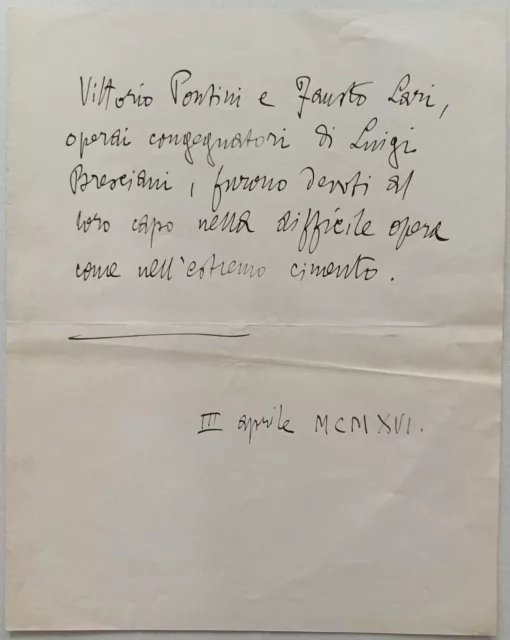 Vittorio Pontini e Fausto Lari,
operai congegnatori di Luigi
Bresciani, furono devoti al
loro capo nella difficile opera
come nell'estremo cimento.
III aprile MCMXVI.